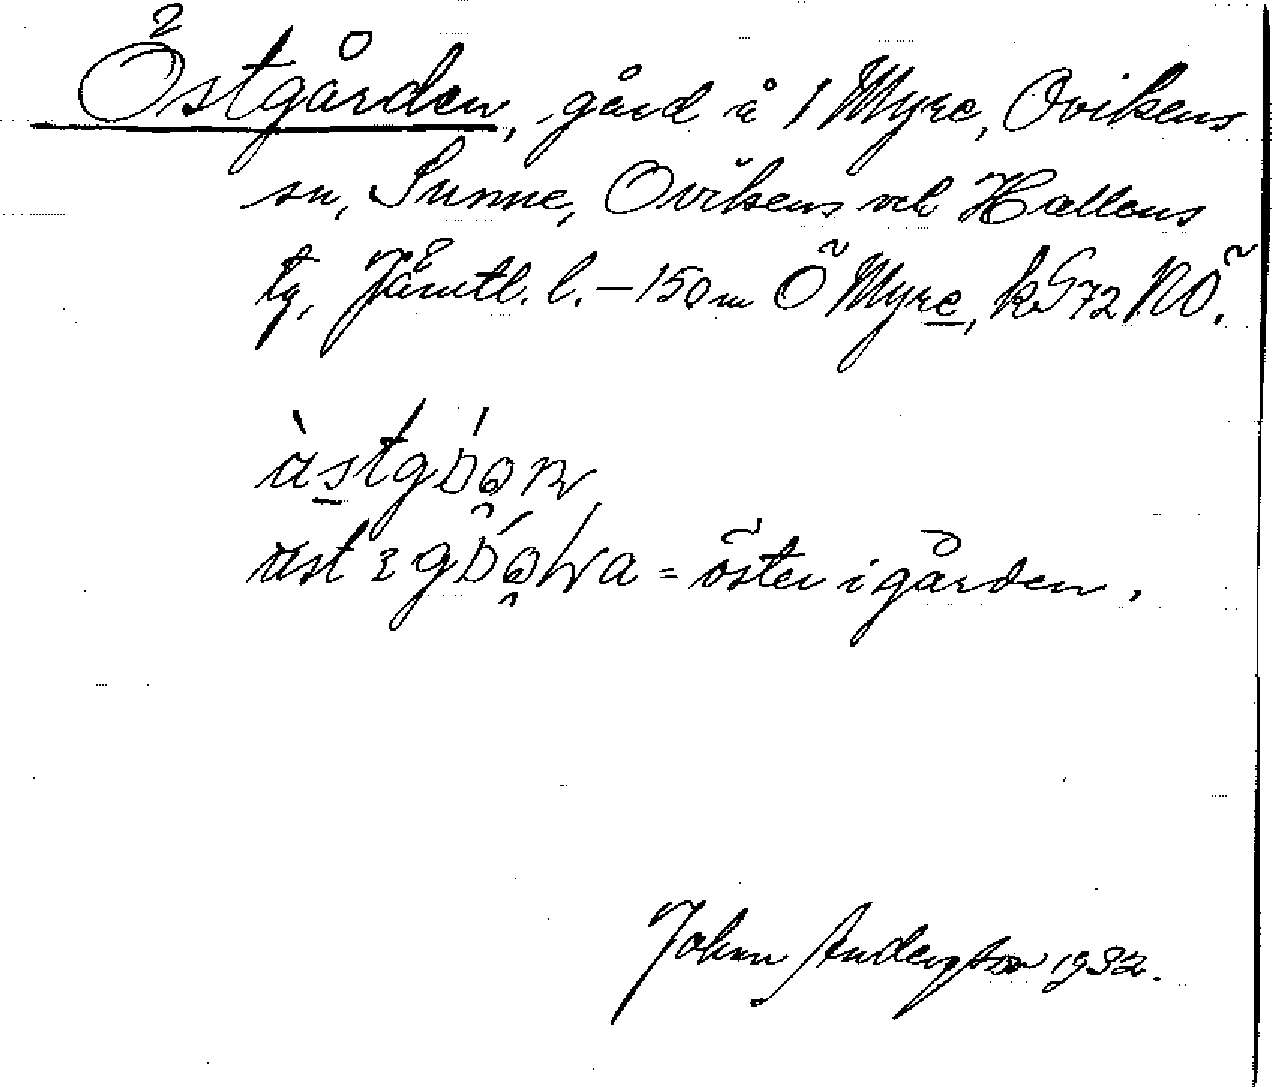 Östgården, gård å 1 Myre, Ovikens
sn, Sunne, Ovikens och Hallens
tg, Jämtl. l. – 150 m Ö Myre, kS72 NO.
= öster i gården.
John Andersson 1932.